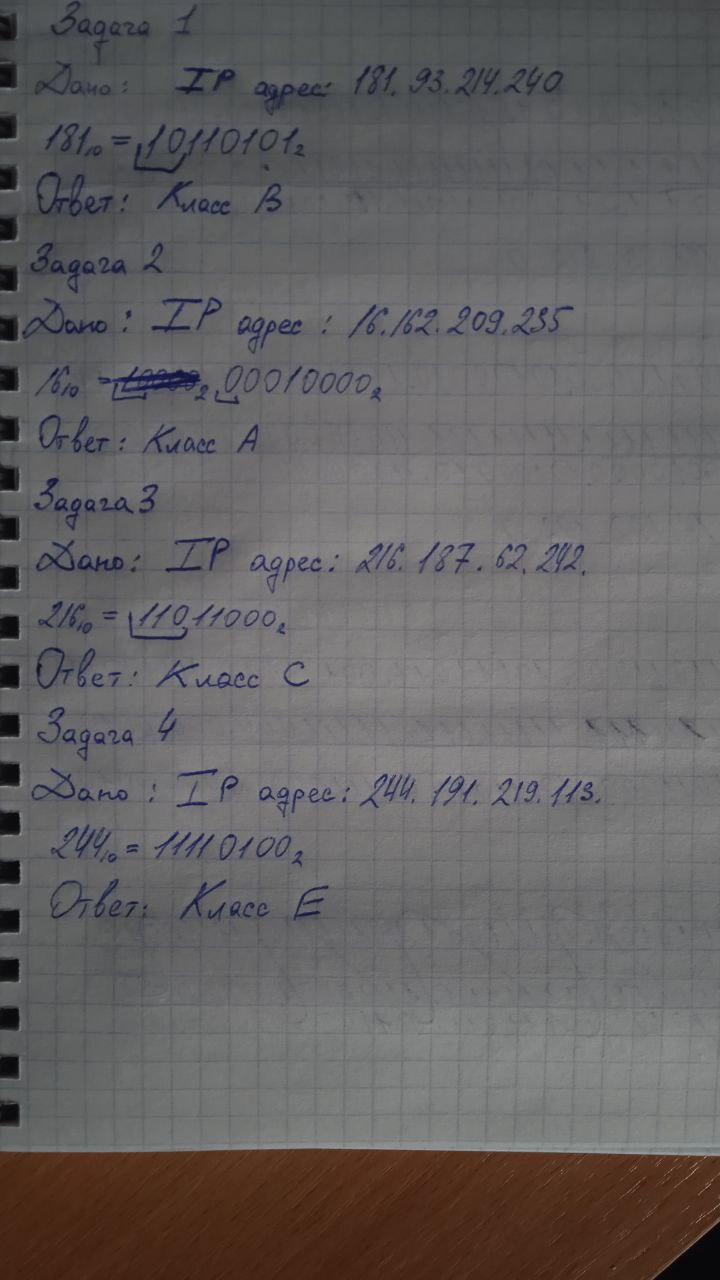 Задача 1
Дано: IP адрес: 181.93.214.240
181₁₀ = 10110101₂
Ответ: Класс B
Задача 2
Дано: IP адрес: 16.162.209.235
16₁₀ = ₂ 00010000₂
Ответ: Класс A
Задача 3
Дано: IP адрес: 216.187.62.242.
216₁₀ = 11011000₂
Ответ: Класс C
Задача 4
Дано: IP адрес: 244.191.219.113.
244₁₀ = 11110100₂
Ответ: Класс E